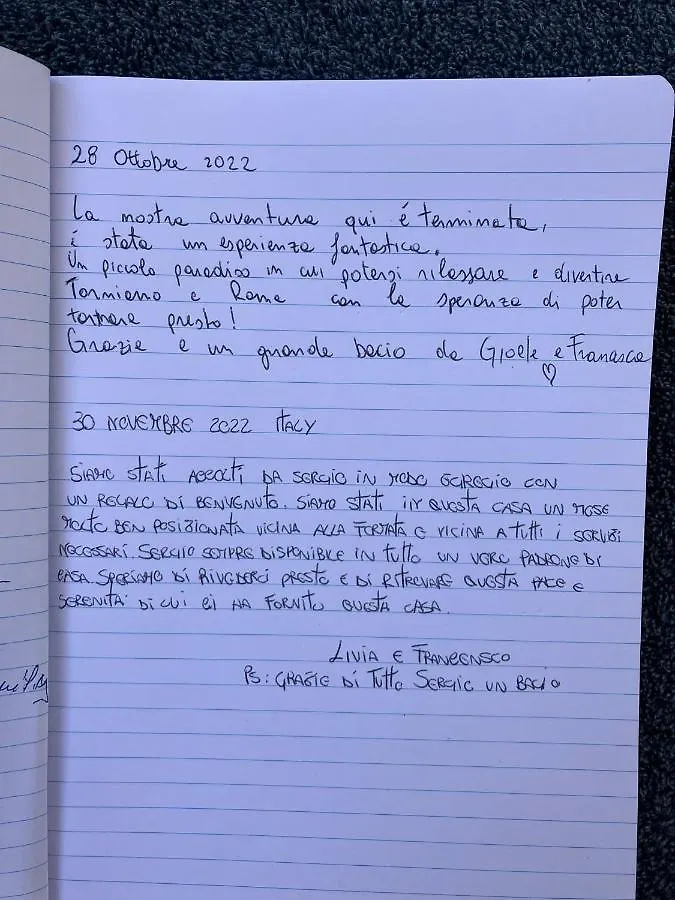 28 Ottobre 2022
La nostra avventura qui é terminata,
é stata un esperienza fantastica.
Un piccolo paradiso in cui potersi rilassare e divertire
Torniamo a Roma con la speranza di poter
tornare presto!
Grazie e un grande bacio da Gioele e Francesca
♡
30 NOVEMBRE 2022 ITALY
SIAMO STATI ACCOLTI DA SERGIO IN MODO EGREGIO CON
UN REGALO DI BENVENUTO. SIAMO STATI IN QUESTA CASA UN MESE
MOLTO BEN POSIZIONATA VICINA ALLA FERMATA E VICINA A TUTTI I SERVIZI
NECESSARI. SERGIO SEMPRE DISPONIBILE IN TUTTO UN VERO PADRONE DI
CASA. SPERIAMO DI RIVEDERCI PRESTO E DI RITROVARE QUESTA PACE E
SERENITÀ DI CUI CI HA FORNITO QUESTA CASA.
LIVIA E FRANCENSCO
PS: GRAZIE DI TUTTO SERGIO UN BACIO